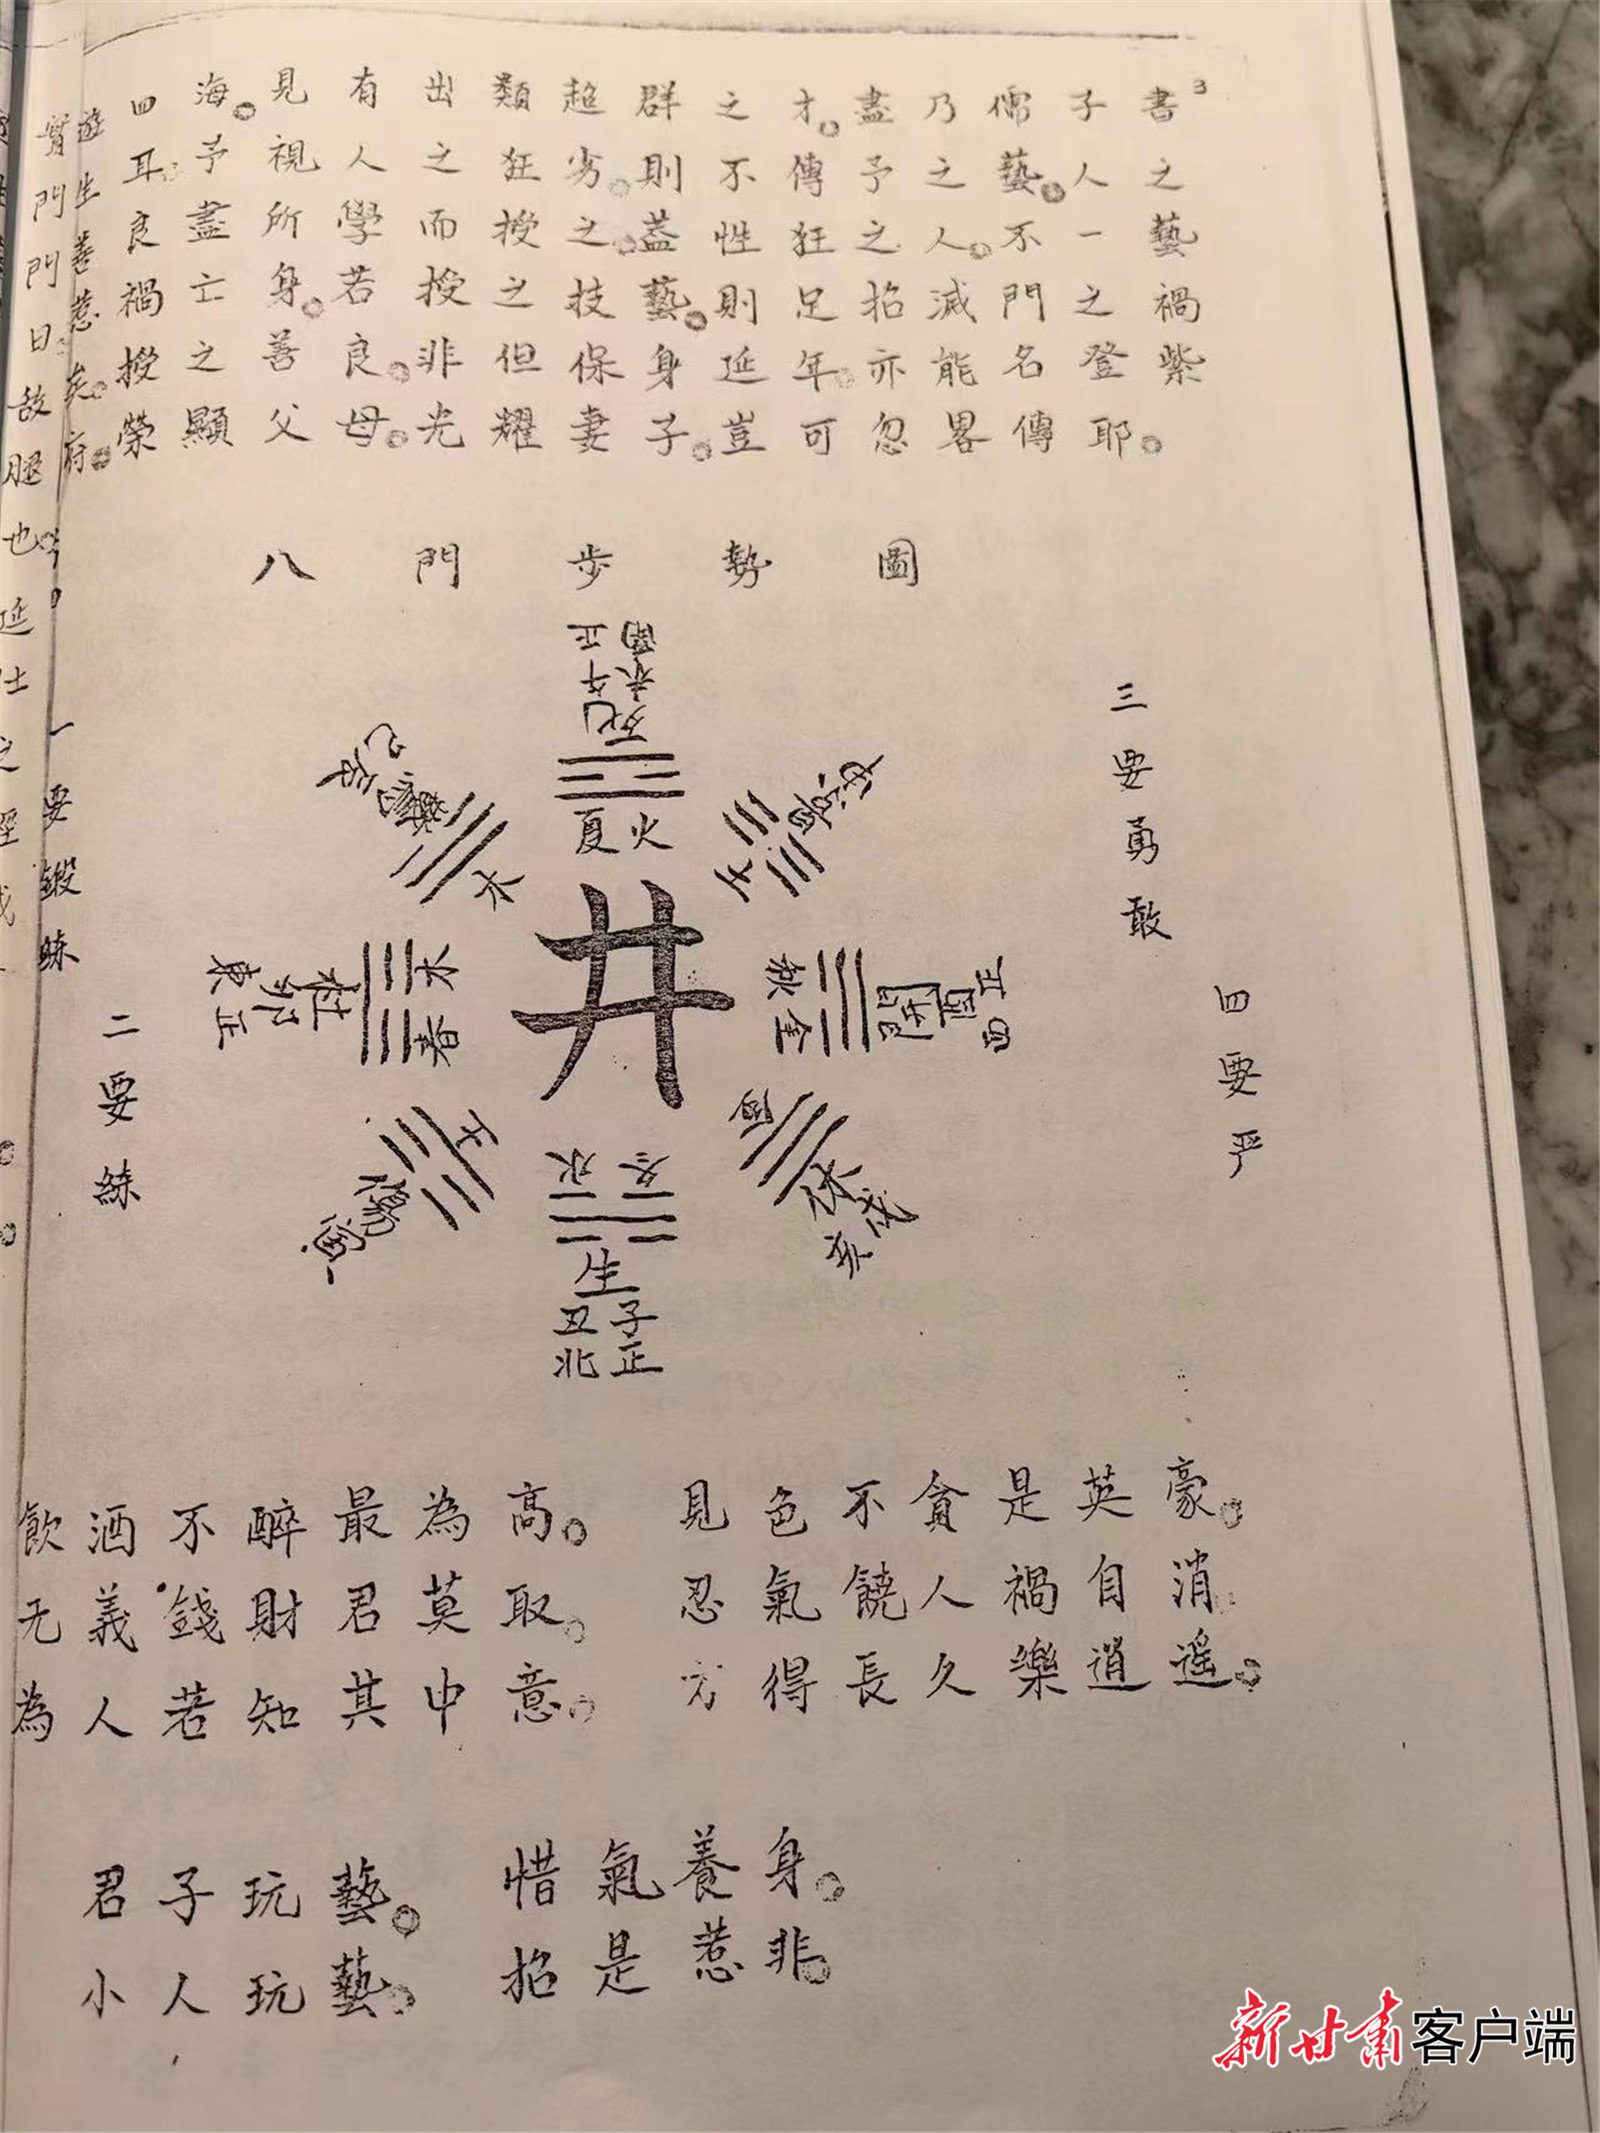 遊四海。見有出類超群之才。盡乃儒子書
生耳。予視人之狂劣。則不傳予之藝。人之
善良盡所學而授之。蓋性狂之人。不一藝
惹禍亡身。若授之技藝。則足招滅門之禍
矣。授之善良。非但保身延年。亦能名登紫
府。榮顯父母。光耀妻子。豈可忽畧傳耶。
3
八門步勢圖
一要鍛
二要練
三要勇敢
四要严
正南
午未
死
夏火
土
巳
木
正東
卯
杜
木
春
井
秋
金
開
正西
土
水冬
生
丑子
北正
休
戌
亥
飲酒不醉最為高。見色不貪是英豪。
无義錢財君莫取。忍氣饒人禍自消
為人若知其中意。方得長久樂逍遥。
君子玩藝。惜氣養身。
小人玩藝。招是惹非。
新甘肃客户端